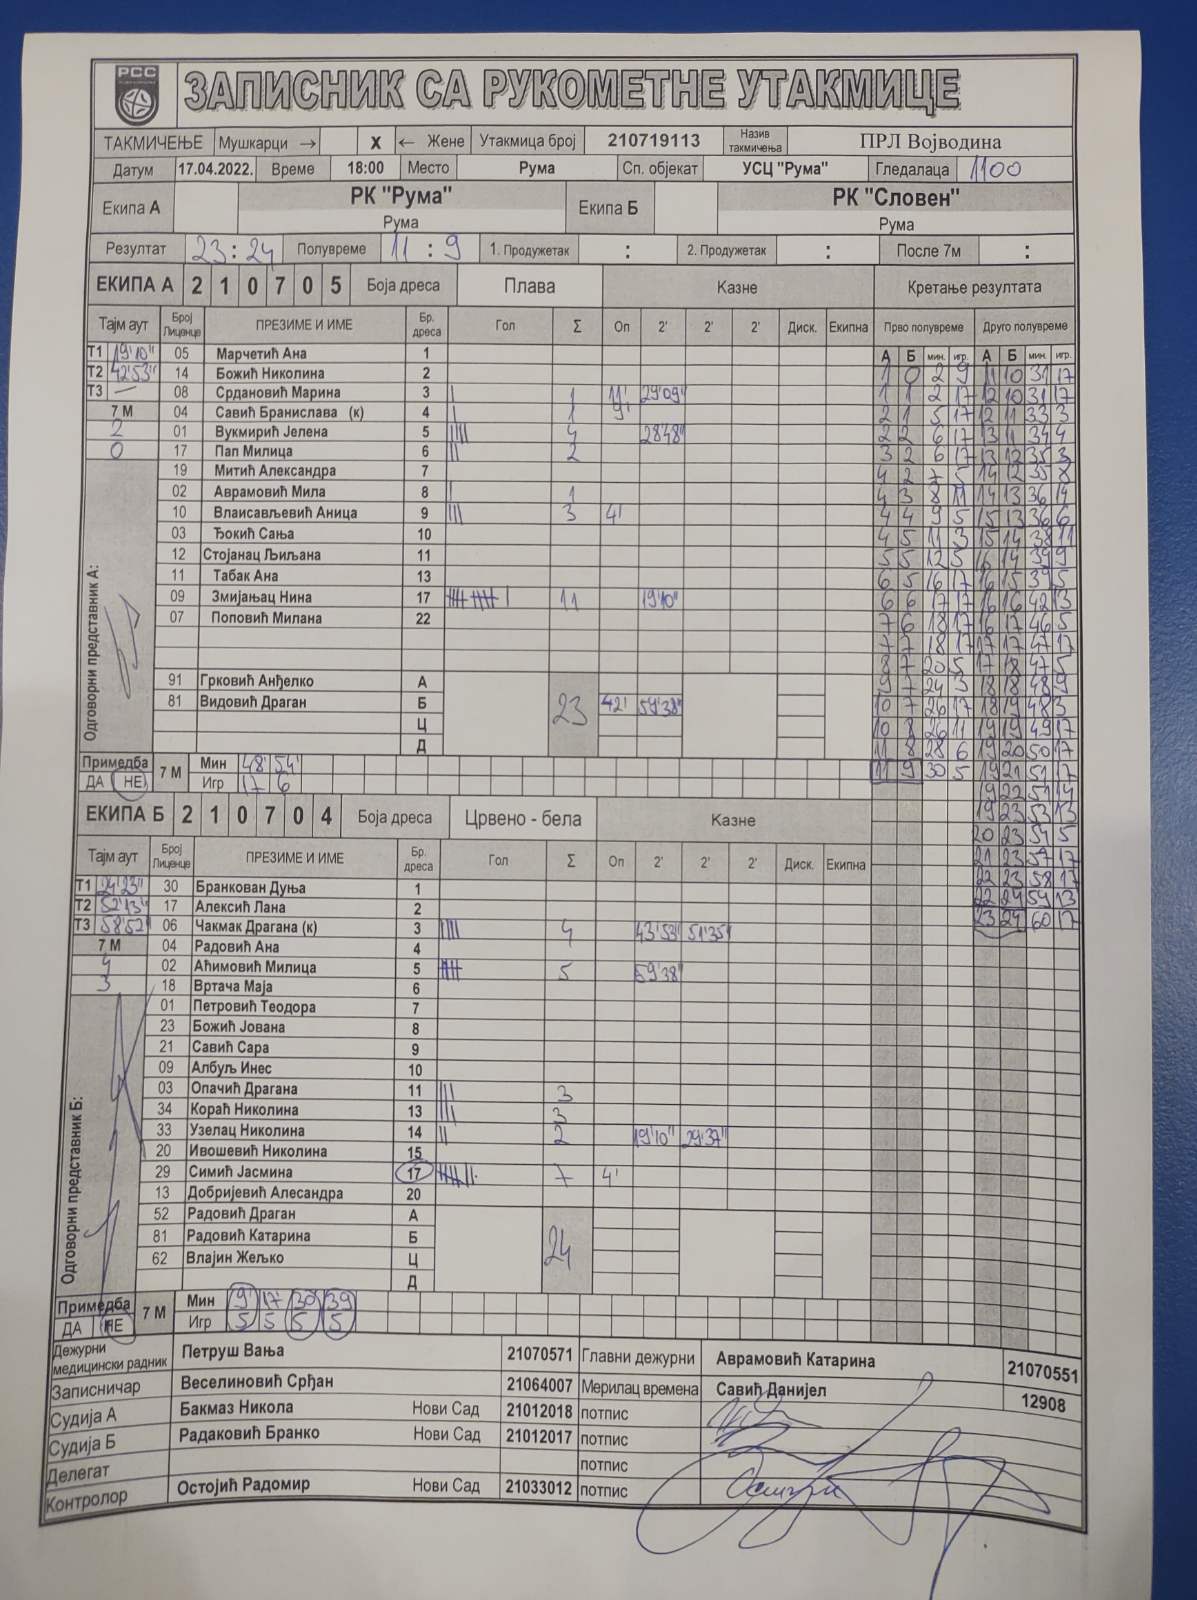 РСС
ЗАПИСНИК СА РУКОМЕТНЕ УТАКМИЦЕ
ТАКМИЧЕЊЕ Мушкарци → X ← Жене Утакмица број 210719113 Назив такмичења ПРЛ Војводина
Датум 17.04.2022. Време 18:00 Место Рума Сп. објекат УСЦ "Рума" Гледалаца 1100
Екипа А РК "Рума" Екипа Б РК "Словен"
Рума Рума
Резултат 23 : 24 Полувреме 11 : 9 1. Продужетак : 2. Продужетак : После 7м :
ЕКИПА А 2 1 0 7 0 5 Боја дреса Плава Казне Кретање резултата
Тајм аут Број Лиценце ПРЕЗИМЕ И ИМЕ Бр. дреса Гол Σ Оп 2' 2' 2' Диск. Екипна Прво полувреме Друго полувреме
А Б мин. игр. А Б мин. игр.
Т1 19'10" 05 Марчетић Ана 1
Т2 42'53" 14 Божић Николина 2 1 0 2 9 11 10 31 17
Т3 — 08 Срдановић Марина 3 | 1 11' 29'09" 1 1 2 17 12 10 31 17
7 М 04 Савић Бранислава (к) 4 | 1 9' 2 1 5 17 12 11 33 3
2 01 Вукмирић Јелена 5 |||| 4 28'48" 2 2 6 17 13 11 34 4
0 17 Пап Милица 6 || 2 3 2 6 17 13 12 35 3
19 Митић Александра 7 4 2 7 5 14 12 35 8
02 Аврамовић Мила 8 | 1 4 3 8 11 14 13 36 14
10 Влаисављевић Аница 9 ||| 3 4' 4 4 9 5 15 13 36 6
03 Ђокић Сања 10 4 5 11 3 15 14 38 11
12 Стојанац Љиљана 11 5 5 12 5 16 14 39 9
11 Табак Ана 13 6 5 16 17 16 15 39 5
09 Змијањац Нина 17 11 19'10" 6 6 17 17 16 16 42 13
07 Поповић Милана 22 7 6 18 17 16 17 46 5
7 7 18 17 17 17 47 17
8 7 20 5 17 18 47 5
91 Грковић Анђелко А 9 7 24 3 18 18 48 9
81 Видовић Драган Б 23 42' 59'38" 10 7 26 17 18 19 48 3
Ц 10 8 26 11 19 19 49 17
Д 11 8 28 6 19 20 50 17
Примедба 7 М Мин 48' 54' 11 9 30 5 19 21 51 17
ДА НЕ Игр 17 6 19 22 51 14
ЕКИПА Б 2 1 0 7 0 4 Боја дреса Црвено - бела Казне 19 23 53 13
20 23 54 5
Тајм аут Број Лиценце ПРЕЗИМЕ И ИМЕ Бр. дреса Гол Σ Оп 2' 2' 2' Диск. Екипна 21 23 57 17
Т1 24'23" 30 Бранкован Дуња 1 22 23 58 17
Т2 52'13" 17 Алексић Лана 2 22 24 59 13
Т3 58'52" 06 Чакмак Драгана (к) 3 |||| 4 43'53" 51'35" 23 24 60 17
7 М 04 Радовић Ана 4
4 02 Аћимовић Милица 5 5 59'38"
3 18 Вртача Маја 6
01 Петровић Теодора 7
23 Божић Јована 8
21 Савић Сара 9
09 Албуљ Инес 10
03 Опачић Драгана 11 ||| 3
34 Кораћ Николина 13 ||| 3
33 Узелац Николина 14 || 2 19'10" 29'37"
20 Ивошевић Николина 15
29 Симић Јасмина 17 7 4'
13 Добријевић Алесандра 20
52 Радовић Драган А
81 Радовић Катарина Б 24
62 Влајин Жељко Ц
Д
Одговорни представник А:
Одговорни представник Б:
Примедба 7 М Мин 9' 17' 30' 39
ДА НЕ Игр 5 5 5 5
Дежурни медицински радник Петруш Вања 21070571 Главни дежурни Аврамовић Катарина 21070551
Записничар Веселиновић Срђан 21064007 Мерилац времена Савић Данијел 12908
Судија А Бакмаз Никола Нови Сад 21012018 потпис
Судија Б Радаковић Бранко Нови Сад 21012017 потпис
Делегат потпис
Контролор Остојић Радомир Нови Сад 21033012 потпис